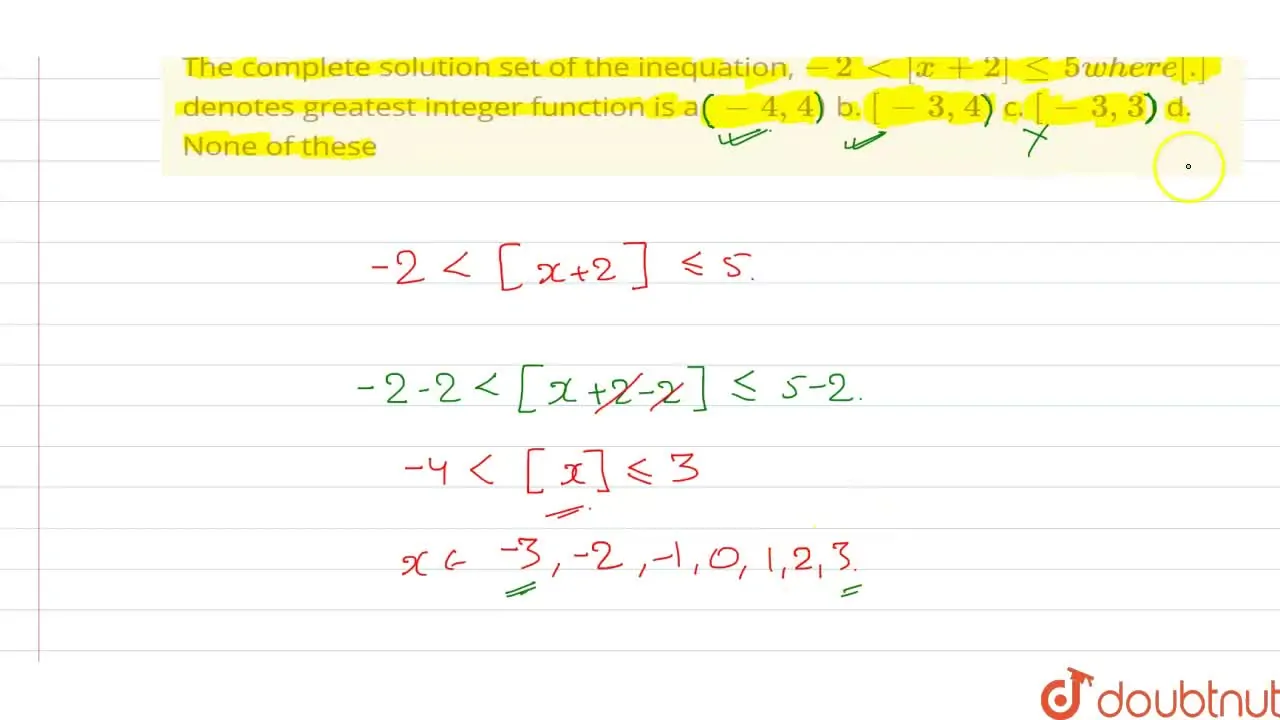 The complete solution set of the inequation, −2 < [x + 2] ≤ 5where[.]
denotes greatest integer function is a(−4, 4) b. [−3, 4) c. [−3, 3) d.
None of these
-2 < [x+2] ≤ 5.
-2-2 < [x+2-2] ≤ 5-2.
-4 < [x] ≤ 3
x ∈ -3, -2, -1, 0, 1, 2, 3.
doubtnut